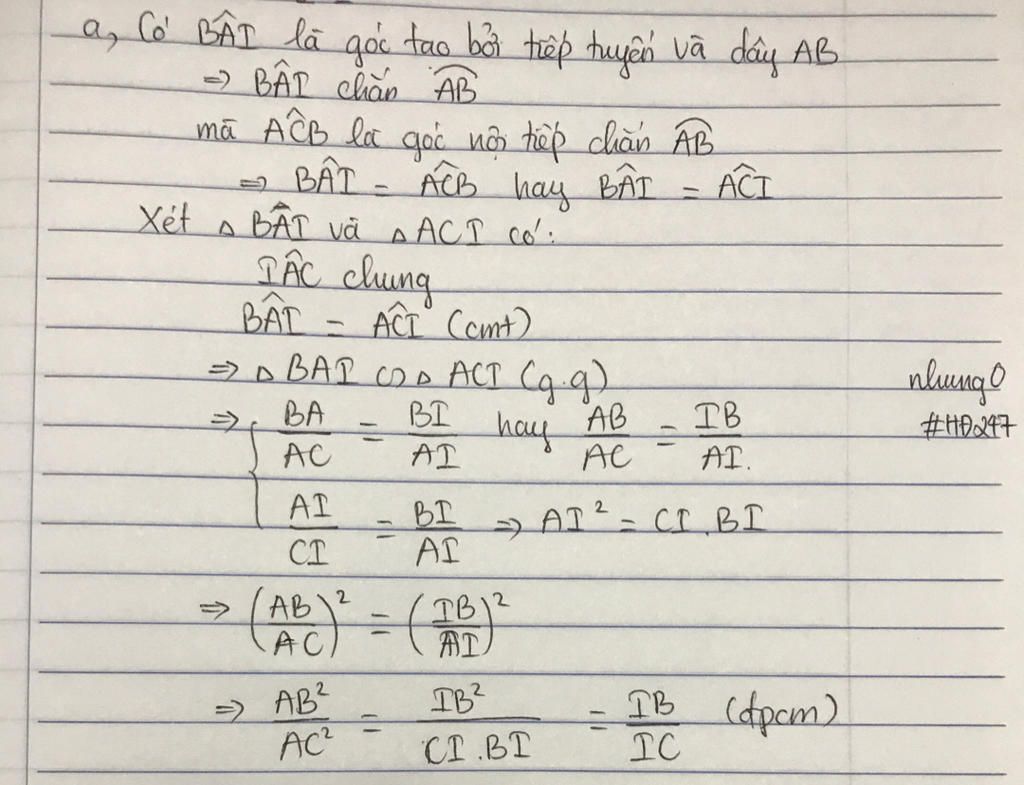 a, Có BÂI là góc tạo bởi tiếp tuyến và dây AB
⇒ BÂI chắn A͡B
mà AĈB là góc nội tiếp chắn A͡B
⇒ BÂI = AĈB hay BÂI = AĈI
Xét △ BÂI và △ ACI có:
IÂC chung
BÂI = AĈI (cmt)
⇒ △ BAI ∽ △ ACI (g.g)
nhung0
#HĐ247
⇒ { BA/AC = BI/AI hay AB/AC = IB/AI.
AI/CI = BI/AI ⇒ AI² = CI.BI
⇒ (AB/AC)² = (IB/AI)²
⇒ AB²/AC² = IB²/CI.BI = IB/IC (đpcm)